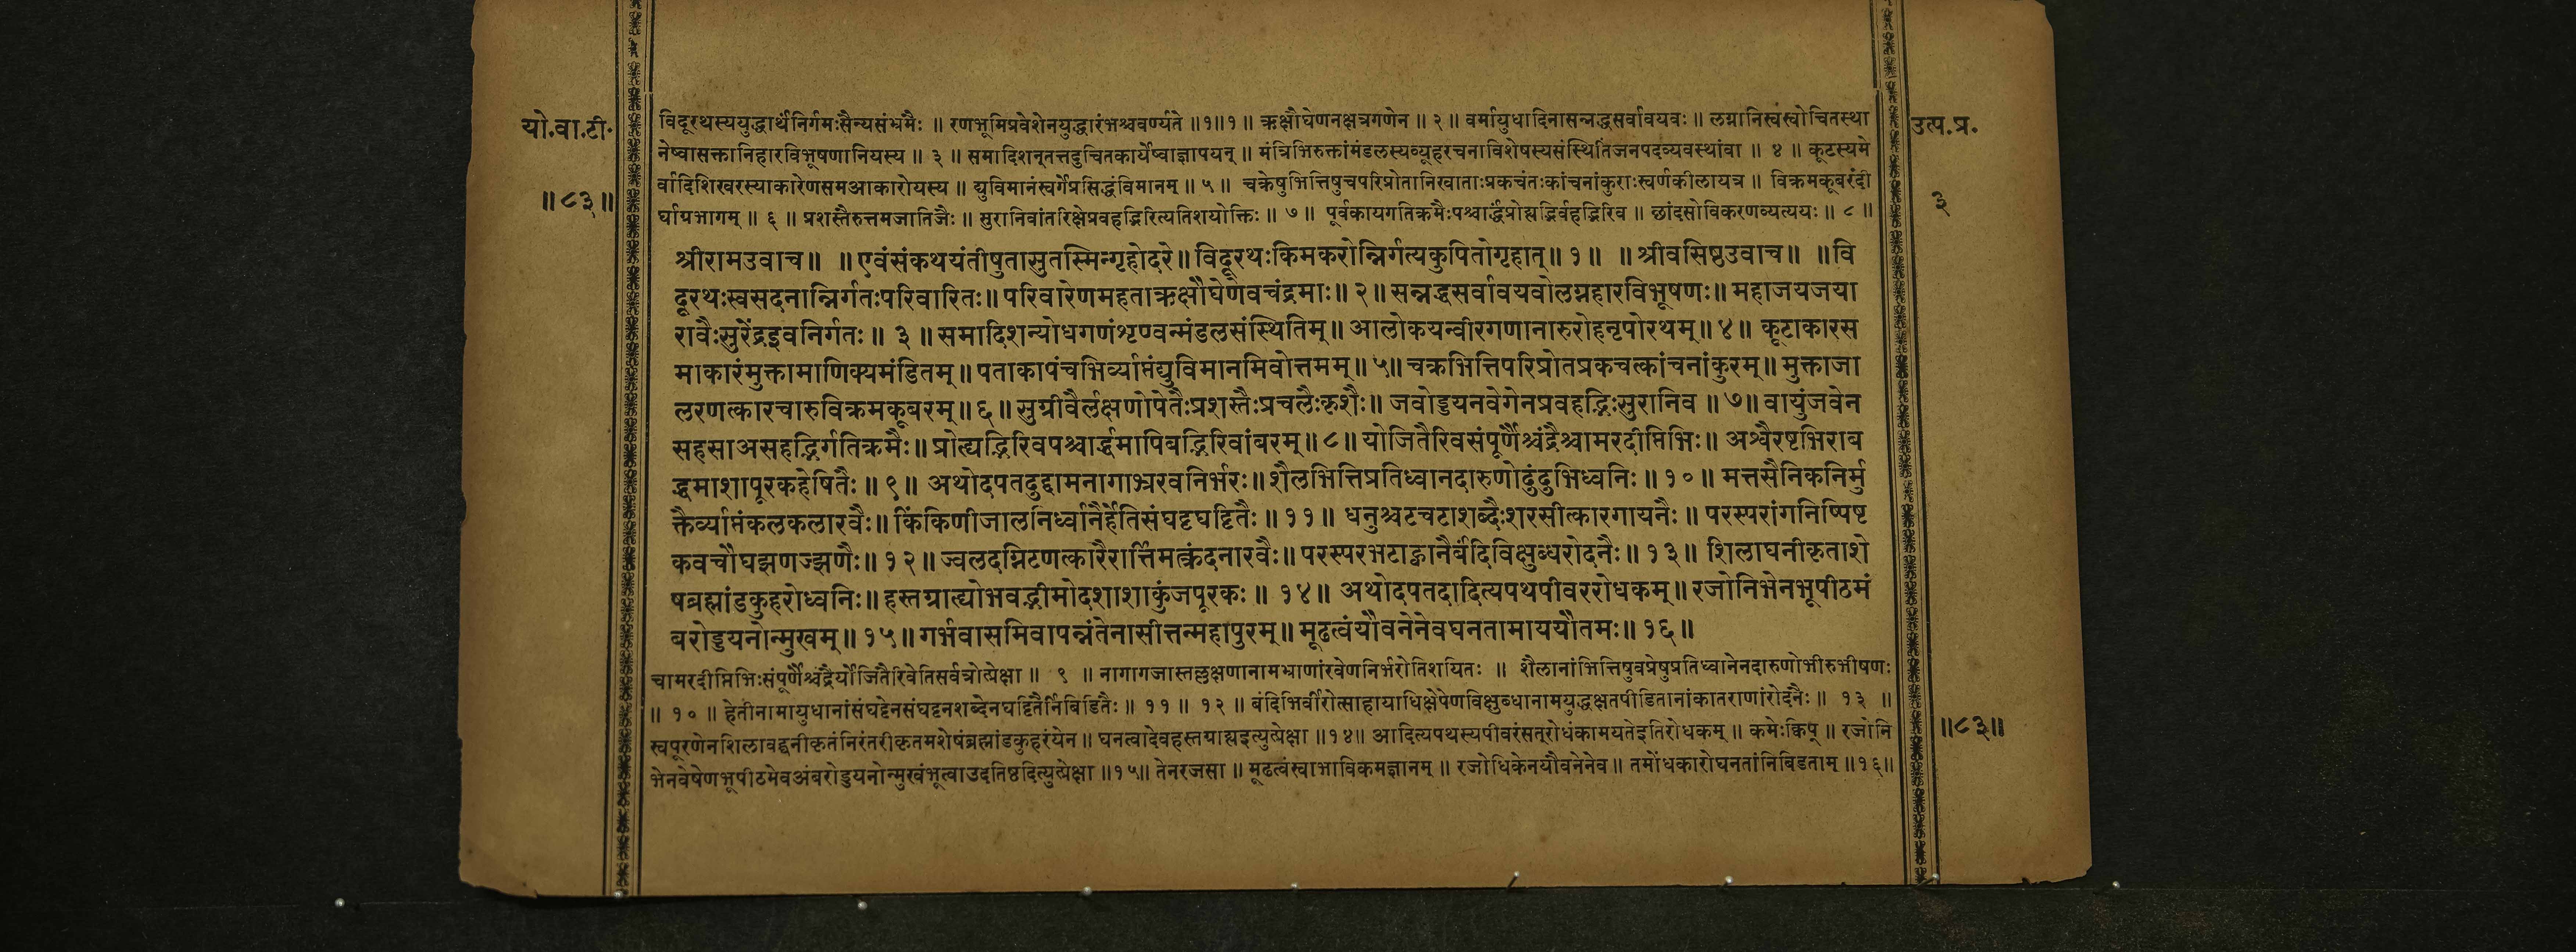 यो.वा.टी.
॥८३॥
उत्प.प्र.
३
विदूरथस्ययुद्धार्थंनिर्गमःसैन्यसंभ्रमैः ॥ रणभूमिप्रवेशेनयुद्धारंभश्चवर्ण्यते ॥१॥१॥ ऋक्षौघेणनक्षत्रगणेन ॥ २ ॥ वर्मायुधादिनासन्नद्धसर्वावयवः ॥ लग्नानिस्वस्वोचितस्था
नेष्वासक्तानिहारविभूषणानियस्य ॥ ३ ॥ समादिशन्तत्तदुचितकार्येष्वाज्ञापयन् ॥ मंत्रिभिरुक्तांमंडलस्यव्यूहरचनाविशेषस्यसंस्थितिंजनपदव्यवस्थांवा ॥ ४ ॥ कूटस्यमे
र्वादिशिखरस्याकारेणसमआकारोयस्य ॥ द्युविमानंस्वर्गेप्रसिद्धंविमानम् ॥ ५ ॥ चक्रेषुभित्तिषुचपरिप्रोतानिखाताःप्रकचंतःकांचनांकुराःस्वर्णकीलायत्र ॥ विक्रमकूबरंदी
र्घाग्रभागम् ॥ ६ ॥ प्रशस्तैरुत्तमजातिजैः ॥ सुरानिवांतरिक्षेप्रवहद्भिरित्यतिशयोक्तिः ॥ ७ ॥ पूर्वकायगतिक्रमैःपश्चार्द्धंप्रोह्यद्भिर्वहद्भिरिव ॥ छांदसोविकरणव्यत्ययः ॥ ८ ॥
श्रीरामउवाच॥ ॥एवंसंकथयंतीषुतासुतस्मिन्गृहोदरे॥ विदूरथःकिमकरोन्निर्गत्यकुपितोगृहात्॥ १॥ ॥श्रीवसिष्ठउवाच॥ ॥वि
दूरथःस्वसदनान्निर्गतःपरिवारितः॥ परिवारेणमहताऋक्षौघेणेवचंद्रमाः॥ २॥ सन्नद्धसर्वावयवोलग्नहारविभूषणः॥ महाजयजया
रावैःसुरेंद्रइवनिर्गतः॥ ३॥ समादिशन्योधगणंशृण्वन्मंडलसंस्थितिम्॥ आलोकयन्वीरगणानारुरोहनृपोरथम्॥ ४॥ कूटाकारस
माकारंमुक्तामाणिक्यमंडितम्॥ पताकापंचभिर्व्याप्तंद्युविमानमिवोत्तमम्॥ ५॥ चक्रभित्तिपरिप्रोतप्रकचत्कांचनांकुरम्॥ मुक्ताजा
लरणत्कारचारुविक्रमकूबरम्॥ ६॥ सुग्रीवैर्लक्षणोपेतैःप्रशस्तैःप्रचलैःकृशैः॥ जवोड्डयनवेगेनप्रवहद्भिःसुरानिव॥ ७॥ वायुंजवेन
सहसाअसहद्भिर्गतिक्रमैः॥ प्रोत्द्यद्भिरिवपश्चार्द्धमापिबद्भिरिवांबरम्॥ ८॥ योजितैरिवसंपूर्णैश्चंद्रैश्चामरदीप्तिभिः॥ अश्वैरष्टभिराब
द्धमाशापूरकहेषितैः॥ ९॥ अथोदपतदुद्दामनागाभ्ररवनिर्भरः॥ शैलभित्तिप्रतिध्वानदारुणोदुंदुभिध्वनिः॥ १०॥ मत्तसैनिकनिर्मु
क्तैर्व्याप्तंकलकलारवैः॥ किंकिणीजालनिर्ध्वानैर्हेतिसंघट्टघट्टितैः॥ ११॥ धनुश्चटचटाशब्दैःशरसीत्कारगायनैः॥ परस्परांगनिष्पिष्ट
कवचौघझणज्झणैः॥ १२॥ ज्वलदग्निटणत्कारैरार्त्तिमत्क्रंदनारवैः॥ परस्परभटाह्वानैर्बंदिविक्षुब्धरोदनैः॥ १३॥ शिलाघनीकृताशे
षब्रह्मांडकुहरोध्वनिः॥ हस्तग्रात्द्योभवद्भीमोदशाशाकुंजपूरकः॥ १४॥ अथोदपतदादित्यपथपीवररोधकम्॥ रजोनिभेनभूपीठमं
बरोड्डयनोन्मुखम्॥ १५॥ गर्भवासमिवापन्नंतेनासीत्तन्महापुरम्॥ मूढत्वंयौवनेनेवघनतामाययौतमः॥ १६॥
चामरदीप्तिभिःसंपूर्णैश्चंद्रैर्योजितैरिवेतिसर्वत्रोत्प्रेक्षा ॥ ९ ॥ नागागजास्तल्लक्षणानामभ्राणांरवेणनिर्भरोतिशयितः ॥ शैलानांभित्तिषुवप्रेषुप्रतिध्वानेनदारुणोभीरुभीषणः
॥ १० ॥ हेतीनामायुधानांसंघट्टेनसंघट्टनशब्देनघट्टितैर्निबिडितैः ॥ ११ ॥ १२ ॥ बंदिभिर्वीरोत्साहायाधिक्षेपेणविक्षुब्धानामयुद्धक्षतपीडितानांकातराणांरोदनैः ॥ १३ ॥
स्वपूरणेनशिलावद्घनीकृतंनिरंतरीकृतमशेषंब्रह्मांडकुहरंयेन ॥ घनत्वादेवहस्तग्राह्यइत्युत्प्रेक्षा ॥१४॥ आदित्यपथस्यपीवरंसत्रोधंकामयतेइतिरोधकम् ॥ कमेःक्विप् ॥ रजोनि
भेनवेषेणभूपीठमेवअंबरोड्डयनोन्मुखंभूत्वाउदतिष्ठदित्युत्प्रेक्षा ॥१५॥ तेनरजसा ॥ मूढत्वंस्वाभाविकमज्ञानम् ॥ रजोधिकेनयौवनेनेव ॥ तमोंधकारोघनतांनिबिडताम् ॥१६॥
॥८३॥